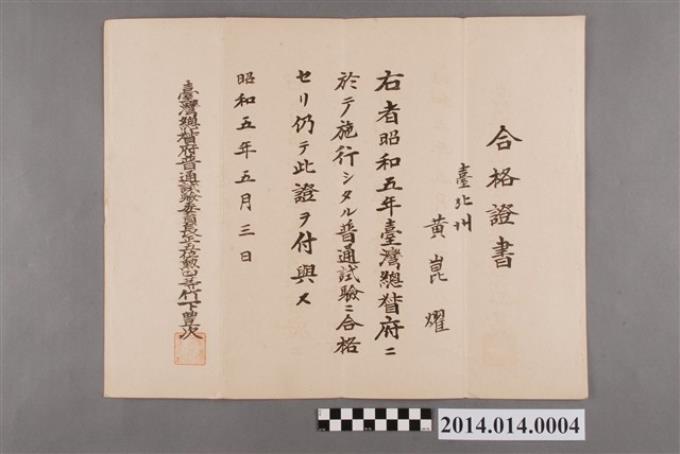 合格證書
臺北州
黃崑耀
右者昭和五年臺灣總督府ニ
於テ施行シタル普通試驗ニ合格
セリ仍テ此證ヲ付與ス
昭和五年五月三日
臺灣總督府普通試驗委員長正五位勲四等竹下豐次
2014.014.0004